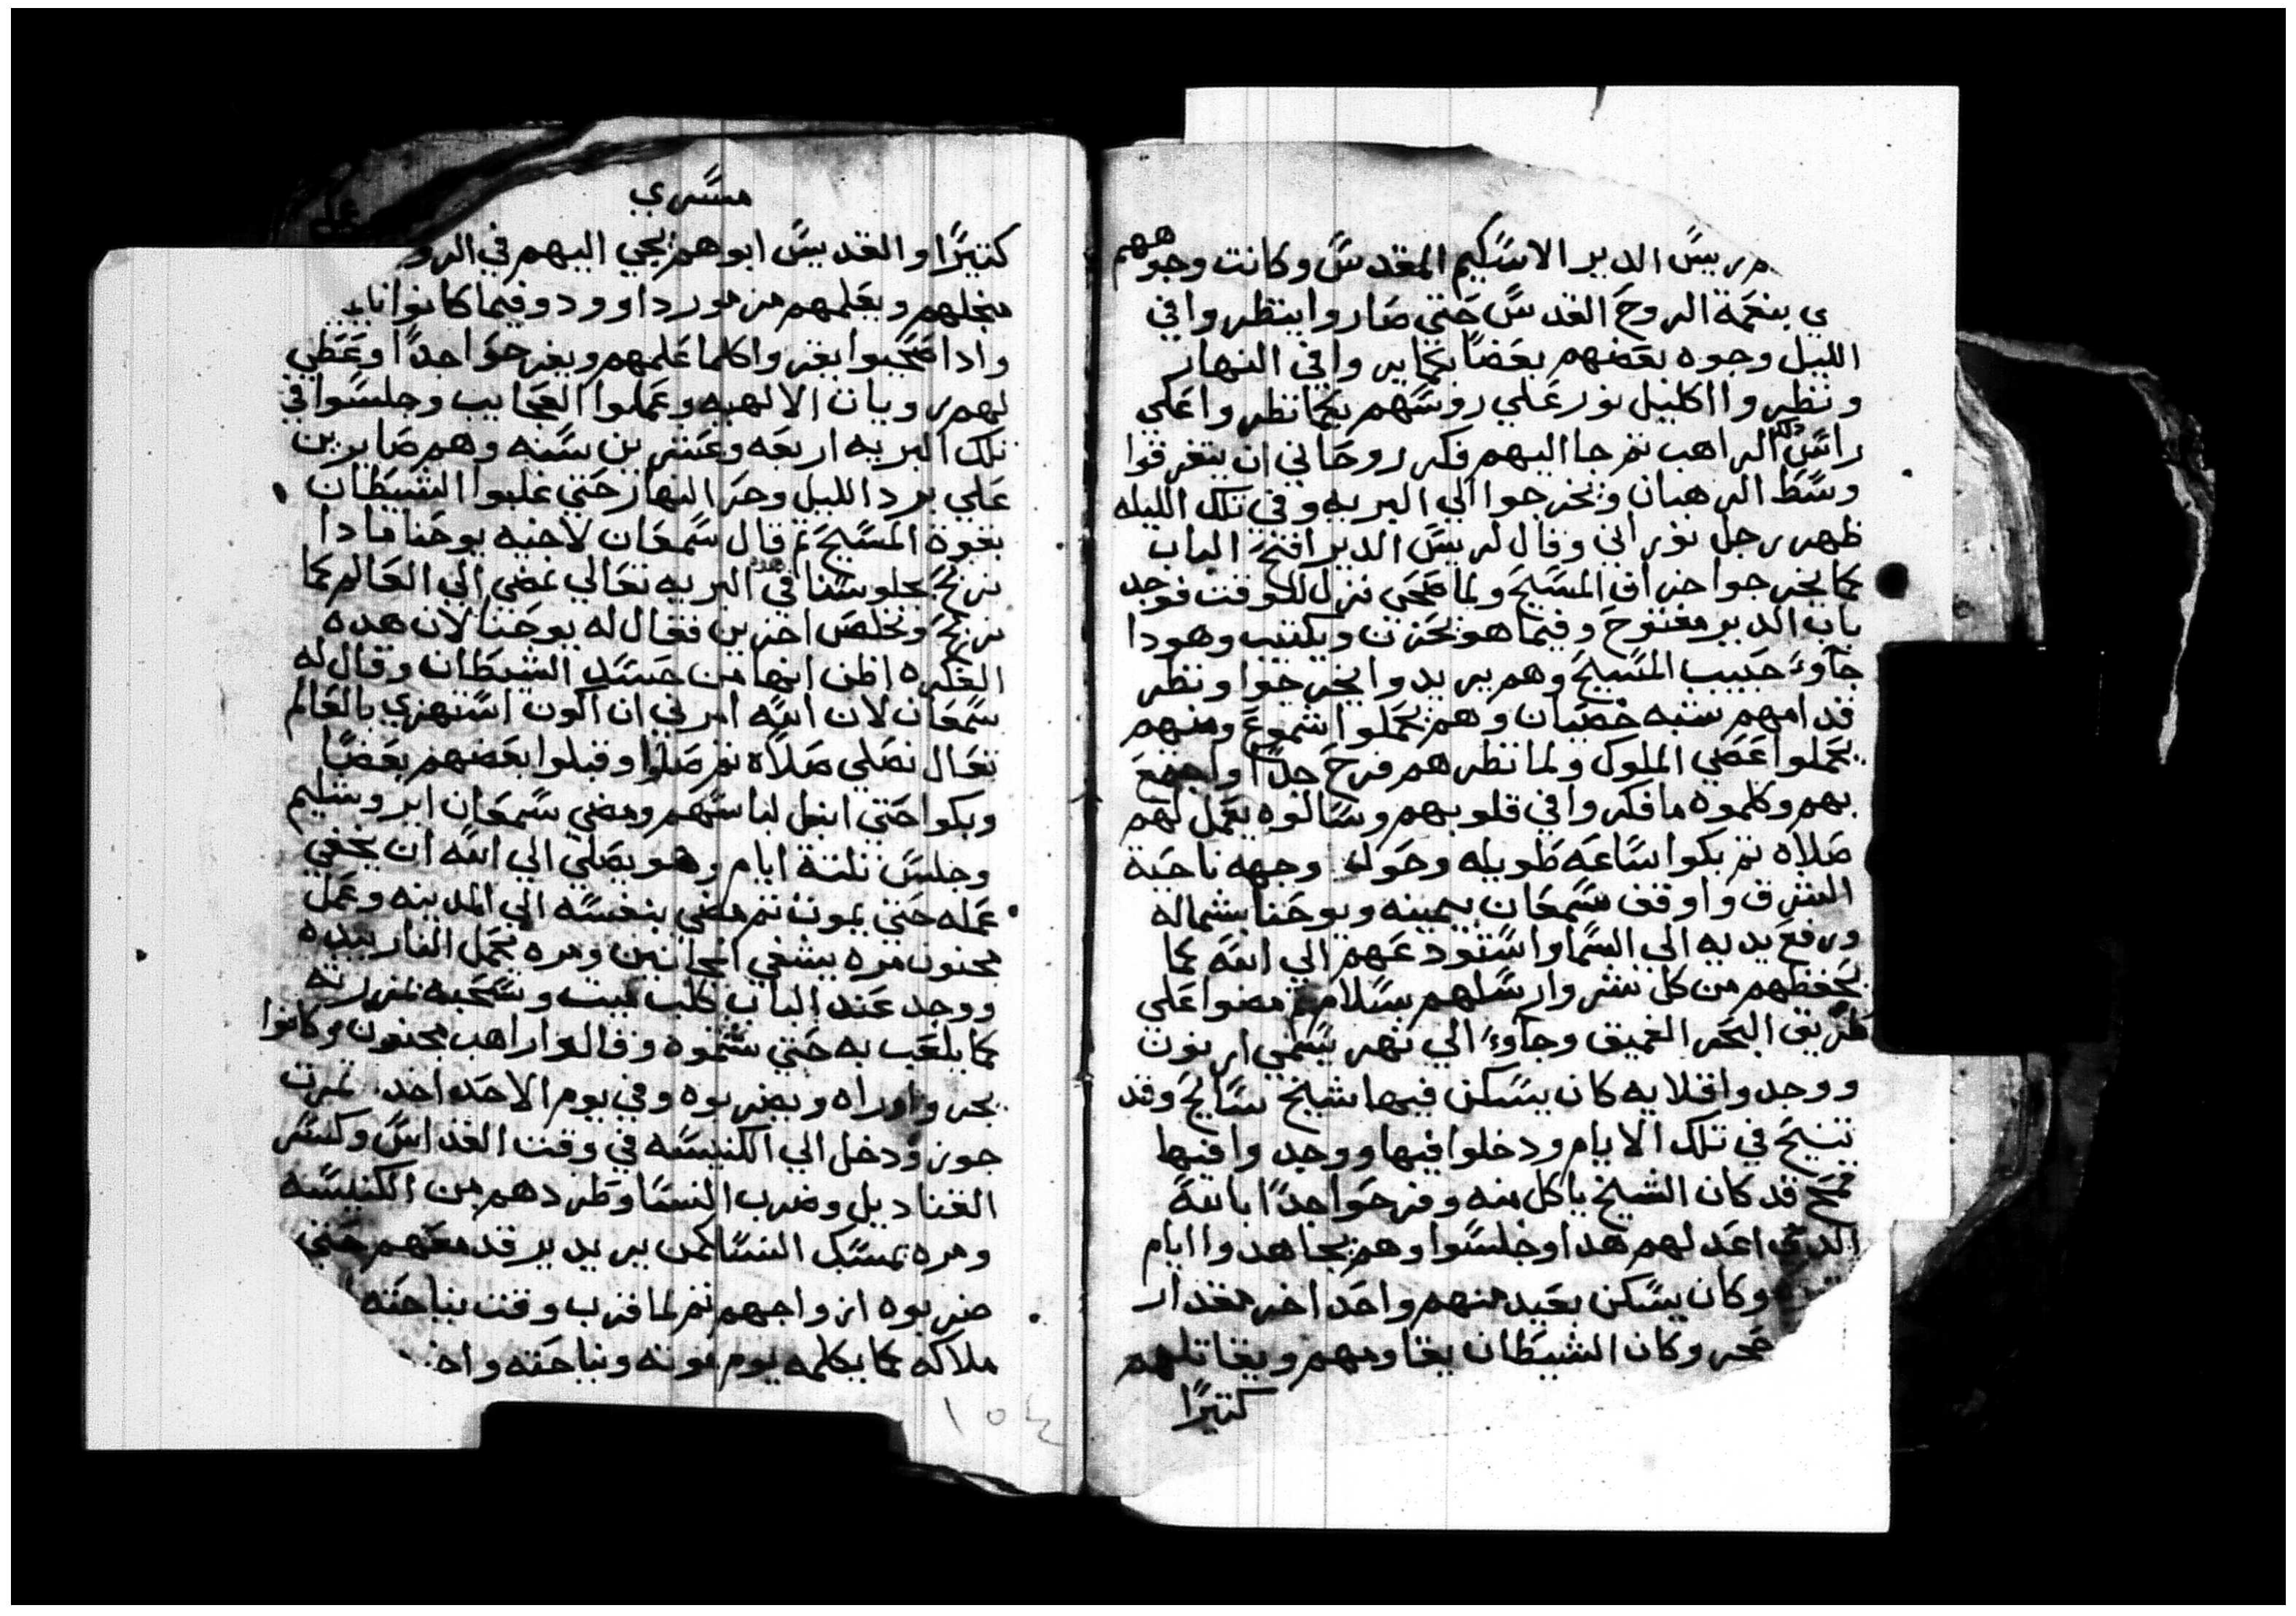 ريس الدير الاسكيم المقدس وكانت وجوههم
ي بنعمة الروح القدس حتي صاروا ينظروا في
الليل وجوه بعضهم بعضا كما يروا في النهار
ونظروا اكليل نور علي روسهم كما نظروا علي
راس دلك الراهب تم جا اليهم فكر روحاني ان يتفرقوا
وسط الرهبان ويخرجوا الي البريه وفي تلك الليله
ظهر رجل نوراني وقال لريس الدير افتح الباب
كما يخرجوا خراف المسيح ولما صحي نزل للوقت فوجد
باب الدير مفتوح وفيما هو يحزن ويكتيب وهودا
جاوء حبيب المسيح وهم يريدوا يخرجوا ونظر
قدامهم شبه خصيان وهم يحملوا شموع ومنهم
يحملوا عصي الملوك ولما نظرهم فرح جدا واجمع
بهم وكلموه ما فكروا في قلوبهم وسالوه يعمل لهم
صلاه تم بكوا ساعه طويله وحول وجهه ناحية
الشرق واوقف سمعان بيمينه ويوحنا بشماله
ورفع يديه الي السما واستودعهم الي الله كما
يحفظهم من كل شر وارسلهم بسلام تم مضوا علي
طريق البحر العميق وجاوء الي نهر يسمي اربون
ووجدوا قلايه كان يسكن فيها شيخ سايح وقد
تنيح في تلك الايام ودخلوا فيها ووجدوا فيها
قمح قد كان الشيخ ياكل منه وفرحوا جدا بالله
الدي اعد لهم هدا وجلسوا وهم يجاهدوا ايام
وكان يسكن بعيد منهم واحد اخر مقدار
حجر وكان الشيطان يقاومهم ويقاتلهم
كتيرا
مسري
كتيرا والقديس ابوهم يجي اليهم في الرو
منجلهم ويعلمهم من مورد اوود وفيما كانوا
وادا صحيوا يقروا كلما علمهم ويفرحوا جدا وعطي
لهم رويات الالهيه وعملوا العجايب وجلسوا في
تلك البريه اربعه وعشرين سنه وهم صابرين
علي برد الليل وحر النهار حتي غلبوا الشيطان
بقوة المسيح تم قال سمعان لاخيه يوحنا مادا
نربح بجلوسنا في هده البريه تعالي نمضي الي العالم كما
نربح ونخلص اخرين فقال له يوحنا لان هده
الفكره اظن انها من حسد الشيطان وقال له
سمعان لان الله امرني ان اكون استهزي بالعالم
تعال نصلي صلاه تم صلوا وقبلوا بعضهم بعضا
وبكوا حتي ابتل لباسهم ومضي سمعان ايروشليم
وجلس تلتة ايام وهو يصلي الي الله ان يخفي
عمله حتي يموت تم مضي بنفسه الي المدينه وعمل
مجنون مره يشفي المجانين ومره يحمل النار بيده
ووجد عند الباب كلب ميت وسحبه
كما يلعب به حتي شتموه وقالوا راهب مجنون وكانوا
يجروا وراه ويضربوه وفي يوم الاحد اخد تمرت
جوز ودخل الي الكنيسه في وقت القداس وكسر
القناديل وضرب النسا وطردهم من الكنيسه
ومره يمسك النسا كمن يريد يرقد معهم حتي
ضربوه ازواجهم تم لما قرب وقت نياحته
ملاكه كما يكلمه يوم موته ونياحته
١٥٤